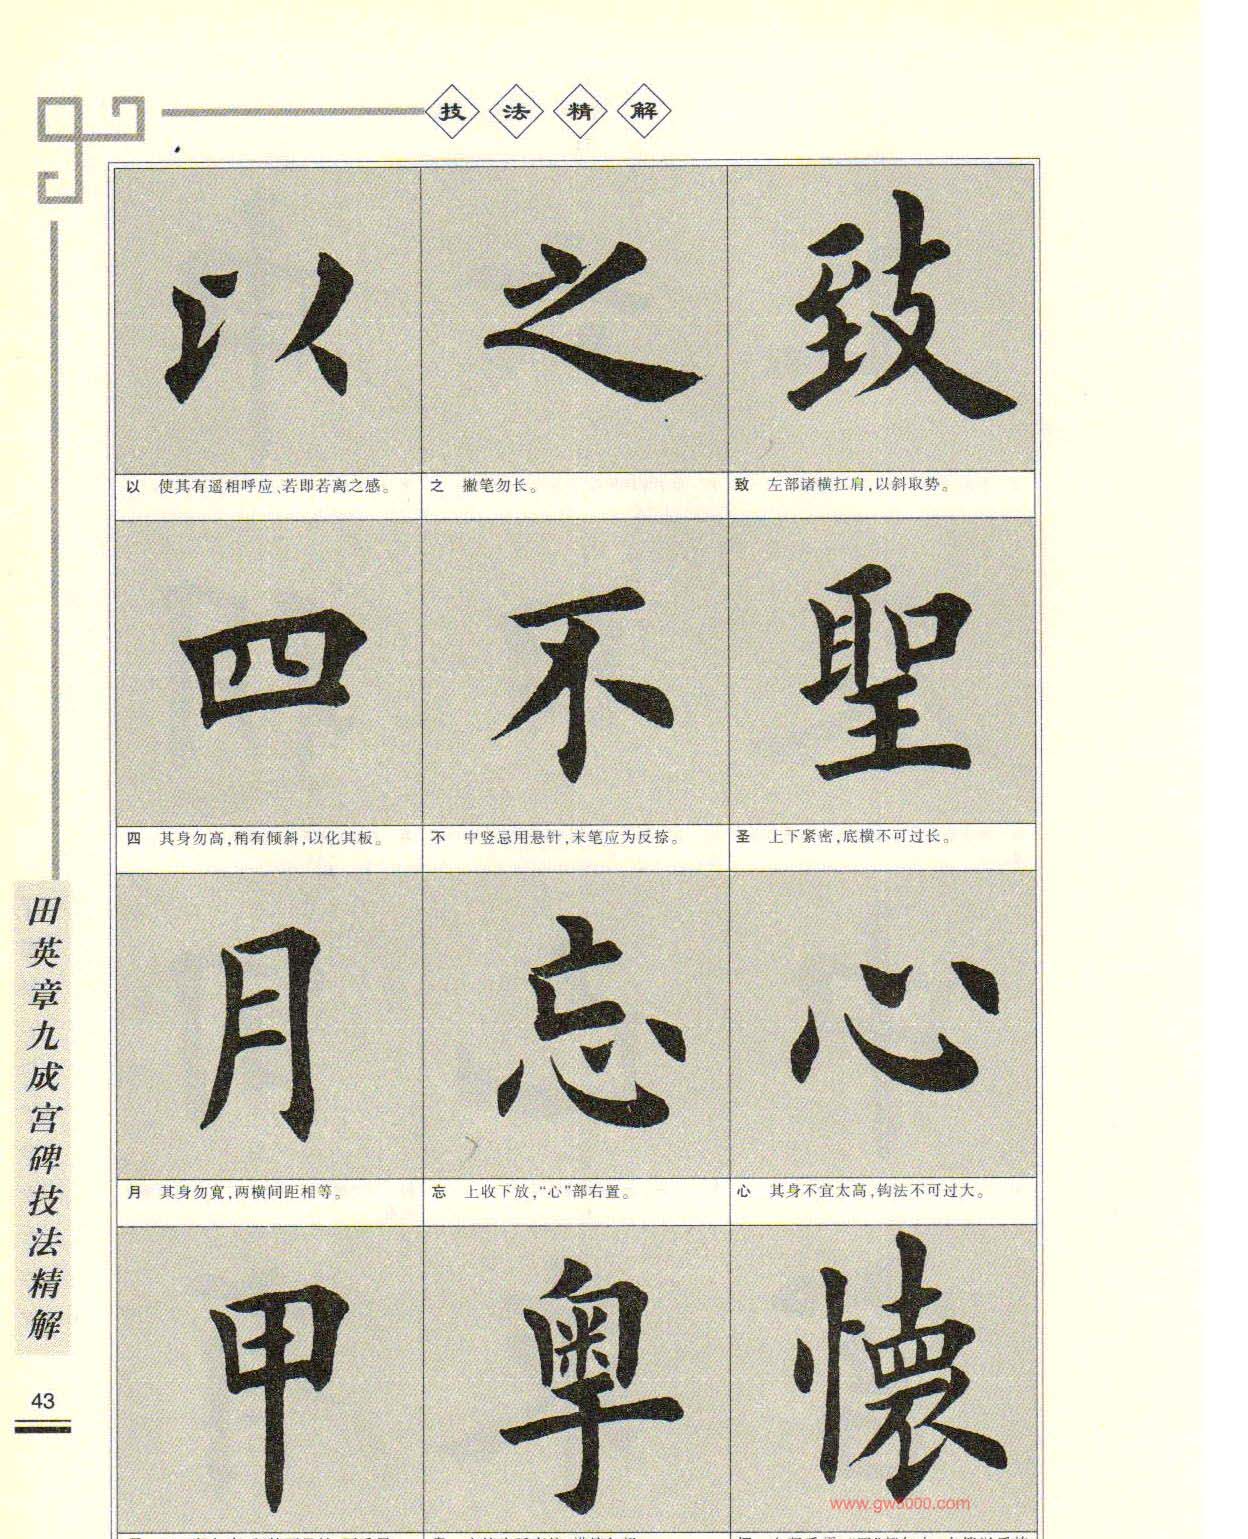 技法精解
以 之 致
以 使其有遥相呼应、若即若离之感。
之 撇笔勿长。
致 左部诸横扛肩,以斜取势。
四 不 聖
四 其身勿高,稍有倾斜,以化其板。
不 中竖忌用悬针,末笔应为反捺。
圣 上下紧密,底横不可过长。
月 忘 心
月 其身勿宽,两横间距相等。
忘 上收下放,“心”部右置。
心 其身不宜太高,钩法不可过大。
甲 粤 懷
www.gw5000.com
田英章九成宫碑技法精解
43